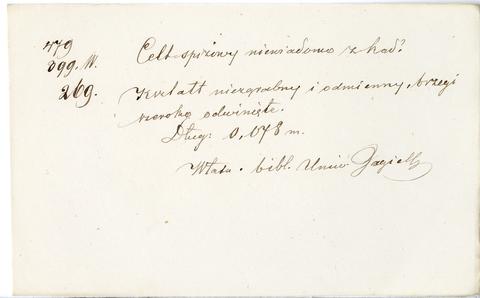 479
399. W.
269.
Celt spiżowy niewiadomo z kąd?
Kształt niezgrabny i odmienny, brzegi
szeroko odwinięte.
Dług: 0,078 m.
Własn. bibl. Uniw. Jagiell